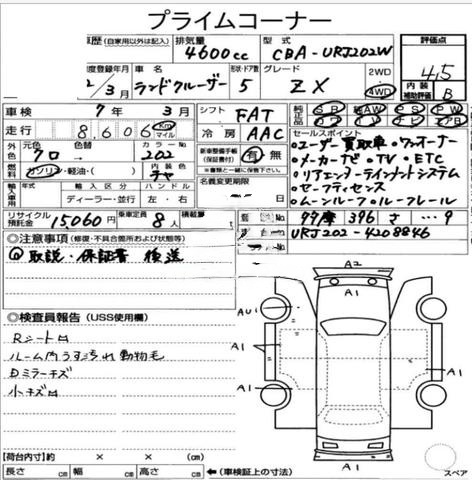 プライムコーナー
歴 (自家用以外は記入) 排気量 4600cc 型式 CBA-URJ202W 評価点
度登録年月 2/3月 車名 ランドクルーザー 形状・ドア数 5 グレード ZX 2WD 4WD 4.5
内装補助評価 B
車検 7年 3月 シフト FAT 純正品 SR AW PS PW
走行 8,606 Km マイル 冷房 AAC
セールスポイント
外色 元色 クロ 色替 カラーNo 202 新車整備手帳(保証書付) 有・無 ○ユーザー買取車 ○ワンオーナー
燃料 ガソリン・軽油・( ) 内装色 チャ ※書類と一緒に保管して下さい。 ○メーカーナビ ○TV ○ETC
輸入車用 輸入区分 ハンドル 名義変更期限 ○リアエンターテインメントシステム
ディーラー・並行 左・右 ○セーフティセンス
○ムーンルーフ ○ルーフレール
リサイクル預託金 15,060円 乗車定員 8人 積載量 396 さ 9
◎注意事項(修復・不具合箇所および状態等) URJ202-4208846
取説・保証書 後送
A2
A1
◎検査員報告(USS使用欄)
Rシート
ルーム内うす汚れ 動物毛
Dミラーキズ
小キズ
A1
A1
A1
A1
【荷台内寸】約 × × (cm)
A1
長さ cm 幅 cm 高さ cm ←(車検証上の寸法) スペア